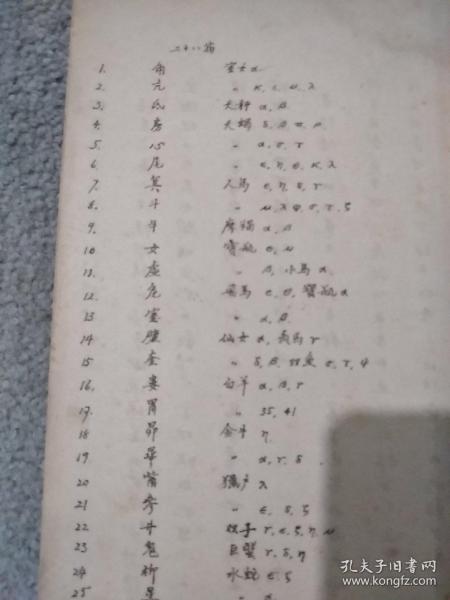 二十八宿
1. 角 室女 α
2. 亢 〃 κ, ι, μ, λ
3. 氐 天秤 α, β
4. 房 天蝎 δ, β, π, ρ
5. 心 〃 α, σ, τ
6. 尾 〃 ε, η, θ, κ, λ
7. 箕 人馬 ε, η, δ, γ
8. 斗 〃 μ, λ, φ, σ, τ, ζ
9. 牛 摩羯 α, β
10 女 寶瓶 ε, μ
11. 虛 〃 β, 小馬 α
12. 危 飛馬 ε, θ, 寶瓶 α
13 室 〃 α, β
14 壁 仙女 α, 飛馬 γ
15 奎 〃 δ, β, 双魚
16. 婁 白羊 α, β, γ
17. 胃 〃 35, 41
18 昴 金牛 η
19 畢 〃 α, γ, δ
20 觜 獵户 λ
21 參 〃 ε, δ, ζ
22 井 双子 γ, ε, ζ, η, μ
23 鬼 巨蟹 γ, δ, η
24 柳 水蛇 ε, ζ
25 星 〃
孔夫子旧书网